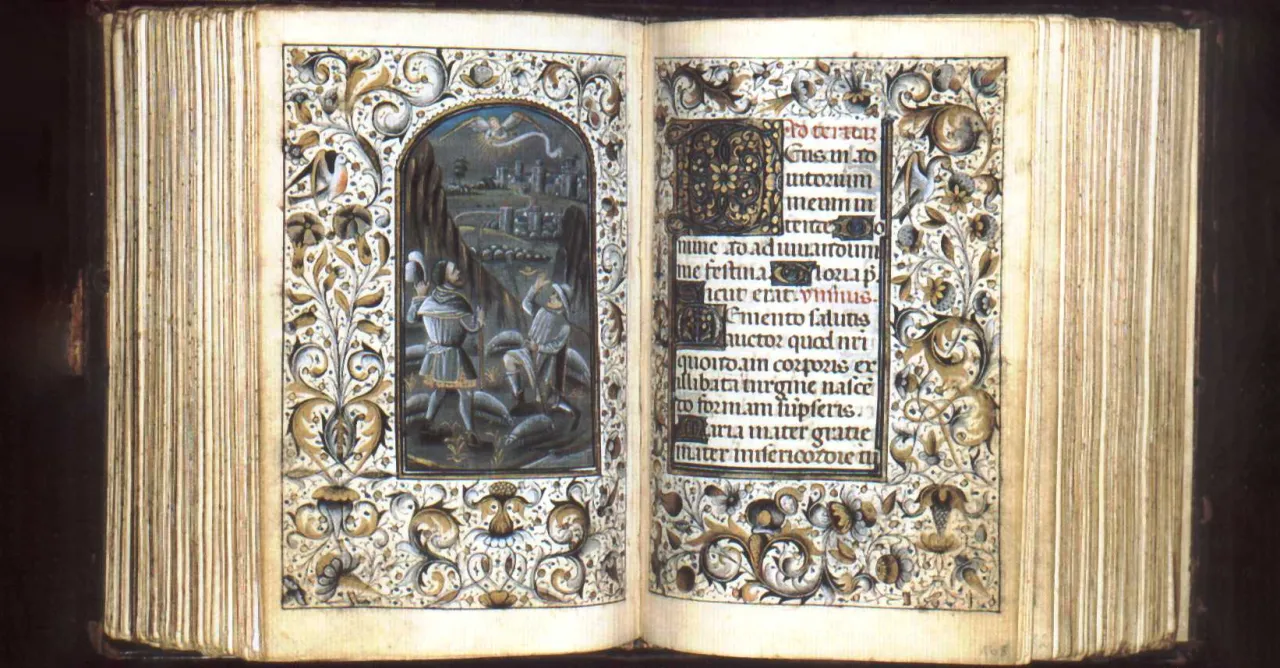 Ad tertiam
Deus in ad
iutorium
meum in
tende Do
mine ad adiuuandum
me festina. Gloria p̄
Sicut erat. ympnus.
Memento salutis
auctor quod nr̄i
quondam corporis ex
illibata uirgine nascē
do formam sūpseris.
Maria mater gratie
mater misericordie tu